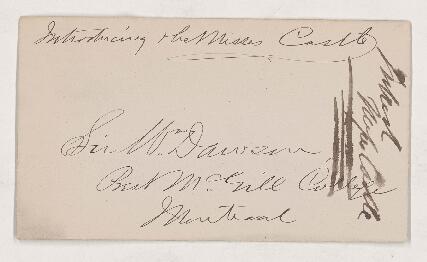 Introducing the Misses Castle
Sir Wm Dawson
Prest McGill College
Montreal
Castle